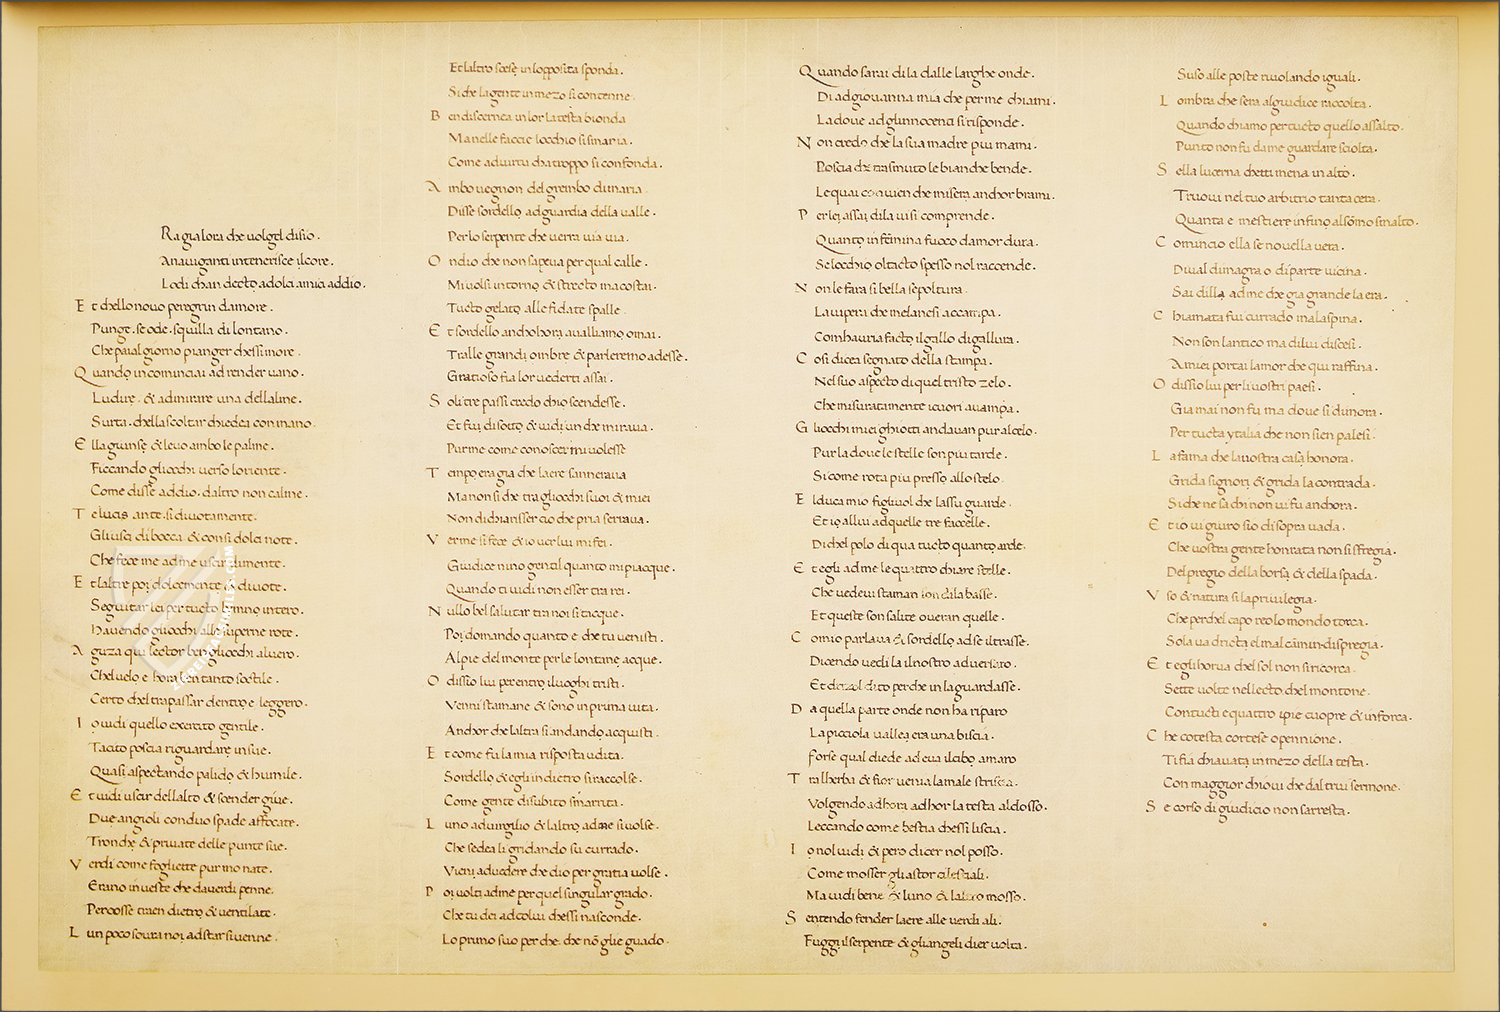 Ra gia lora che volgel disio.
Anaviganti intenerisce ilcore.
Lodi chan decto adolci amici addio.
Et chello novo peregrin damore.
Punge. se ode. squilla di lontano.
Che paial giorno pianger chessi more.
Quando incominciai ad render vano.
Ludire. & admirare una dellalme.
Surta. chellascoltar chiedea con mano.
Ella giunse & levo ambo le palme.
Ficcando gliocchi verso loriente.
Come disse addio. daltro non calme.
Te lucis ante. si divotamente.
Gliusci di bocca & con si dolci note.
Che fece me ad me uscir dimente.
Et laltre poi dolcemente & divote.
Seguitar lei per tucto lymno intero.
Havendo gliocchi alle superne rote.
Aguza qui lector ben gliocchi alvero.
Chelvelo e hora ben tanto soctile.
Certo cheltrapassar dentro e leggero.
Io vidi quello exercito gentile.
Tacito poscia riguardare in sue.
Quasi aspectando palido & humile.
Et vidi uscir dellalto & scender giue.
Due angioli con duo spade affocate.
Tronche & private delle punte sue.
Verdi come fogliette pur mo nate.
Erano in veste che daverdi penne.
Percosse traen dietro & ventilate.
Lun poco sovra noi adstar sivenne.
Et laltro scese inlopposita sponda.
Si che lagente in mezo si contenne.
Ben discernea in lor la testa bionda
Ma nelle faccie locchio si smaria.
Come advirtu cha troppo si confonda.
Ambo vegnon del grembo dimaria
Disse sordello adguardia della valle.
Per lo serpente che verra via via.
Ondio che non sapeva per qual calle.
Mi volsi intorno & strecto macostai.
Tucto gelato alle fidate spalle
Et sordello anchohora avalliamo omai.
Tralle grandi ombre & parleremo adesse.
Gratioso fia lor vedervi assai.
Soli tre passi credo chio scendesse.
Et fui disotto & vidi un che mirava.
Pur me come conoscer mi volesse
Tempo era gia che laere sannerava
Ma non si che tra gliocchi suoi & miei
Non dichiarisser cio che pria serrava.
Ver me si fece & io ver lui mi fei.
Giudice nino gentil quanto mi piacque.
Quando ti vidi non esser tra rei.
Nullo bel salutar tra noi si tacque.
Poi domando quanto e che tu venisti.
Alpie del monte perle lontane acque.
O dissio lui per entro iluoghi tristi.
Venni stamane & sono in prima vita.
Anchor che laltra si andando acquisti.
Et come fu la mia risposta udita.
Sordello & egli indietro si raccolse.
Come gente disubito smarrita.
Luno advirgilio & laltro ad me si volse.
Che sedea li gridando su currado.
Vieni advedere che dio per gratia volse.
Poi volti ad me per quel singular grado.
Che tu dei ad colui chessi nasconde.
Lo primo suo per che. che nō glie guado.
Quando sarai di la dalle larghe onde.
Di ad giovanna mia che per me chiami.
La dove ad glinnocenti si risponde.
Non credo che la sua madre piu mami.
Poscia che trasmuto le bianche bende.
Le quai convien che misera anchor brami.
Per lei assai dila visi comprende.
Quanto in femina fuoco damor dura.
Se locchio oltacto spesso nol raccende.
Non le fara si bella sepoltura.
La vipera che melanesi accampa.
Comhavria facto ilgallo di gallura.
Cosi dicea segnato della stampa.
Nel suo aspecto di quel dristo zelo.
Che misuratamente icuori avampa.
Gliocchi miei ghiotti andavan pur alcielo.
Pur la dove le stelle son piu tarde.
Si come rota piu presso allo stelo.
Elduca mio figliuol che lassu guarde.
Et io allui adquelle tre faccelle.
Di chel polo di qua tucto quanto arde.
Et egli ad me le quattro chiare stelle.
Che vedevi staman son dila basse.
Et queste son salite overan quelle.
Comio parlava & sordello ad se iltrasse.
Dicendo vedi la ilnostro adversaro.
Et drizol dito perche in la guardasse.
Da quella parte onde non ha riparo
La picciola vallea era una biscia.
Forse qual diede ad eva ilcibo amaro
Tralherba & fior venia la male striscia.
Volgendo adhora adhor la testa aldosso.
Leccando come bestia chessi liscia.
Io nol vidi & pero dicer nol posso.
Come mosser gli astor celestiali.
Ma vidi bene & luno & laltro mosso.
Sentendo fender laere alle verdi ali.
Fuggi ilserpente & gliangeli dier volta.
Suso alle poste rivolando iguali.
Lombra che sera algiudice raccolta.
Quando chiamo per tucto quello assalto.
Punto non fu da me guardare sciolta.
Sella lucerna chetti mena in alto.
Truovi nel tuo arbitrio tanta cera.
Quanta e mestiere infino alsōmo smalto.
Comincio ella se novella vera.
Di val dimagra o di parte vicina.
Sai dilla ad me che gia grande la era.
Chiamata fui currado malaspina.
Non son lantico ma dilui discesi.
A miei portai lamor che qui raffina.
O dissio lui per livostri paesi.
Gia mai non fu ma dove si dimora.
Per tucta ytalia che non sien palesi.
La fama che lavostra casa honora.
Grida signori & grida la contrada.
Si che ne sa chi non vi fu anchora.
Et io vi giuro sio di sopra vada.
Che vostra gente honrata non si sfregia.
Del pregio della borsa & della spada.
Uso & natura si la privilegia.
Che perchel capo reo lo mondo torca.
Sola va dricta el mal cāmin dispregia.
Et egli hor va chel sol non si ricorca.
Sette volte nel lecto chel montone.
Con tucti e quattro ipie cuopre & inforca.
Che cotesta cortese opennione.
Ti fia chiavata in mezo della testa.
Con maggior chiovi che daltrui sermone.
Se corso di giudicio non sarresta.